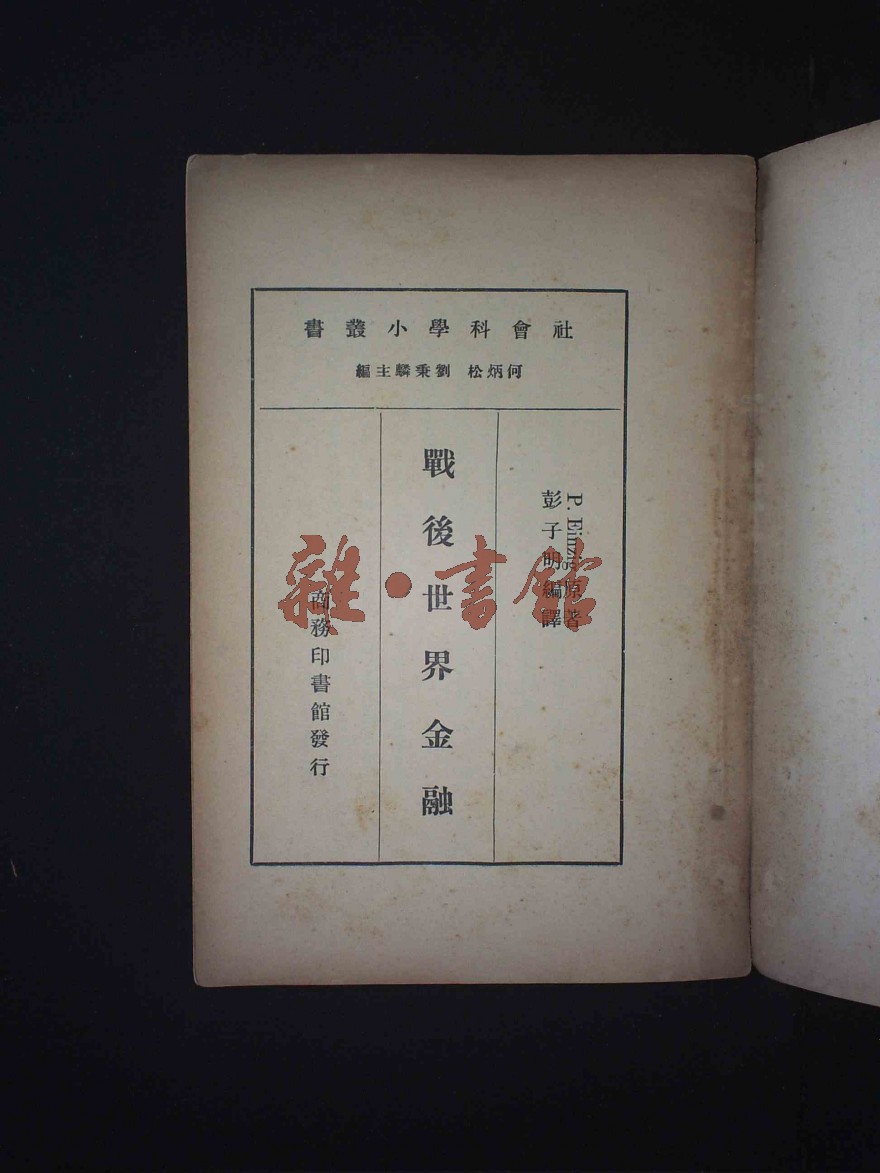 社會科學小叢書
何炳松 劉秉麟主編
P. Einzig原著
彭子明編譯
戰後世界金融
商務印書館發行
雜·書館